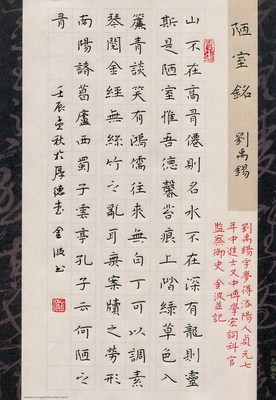 陋室銘 劉禹錫
劉禹錫字夢得洛陽人貞元七
年中進士又中博學宏詞科官
監察御史 金波並記
山不在高有僊則名水不在深有龍則靈
斯是陋室惟吾德馨苔痕上階綠草色入
簾青談笑有鴻儒往來無白丁可以調素
琴閱金經無絲竹之亂耳無案牘之勞形
南陽諸葛廬西蜀子雲亭孔子云何陋之
有
壬辰孟秋於厚德堂 金波書